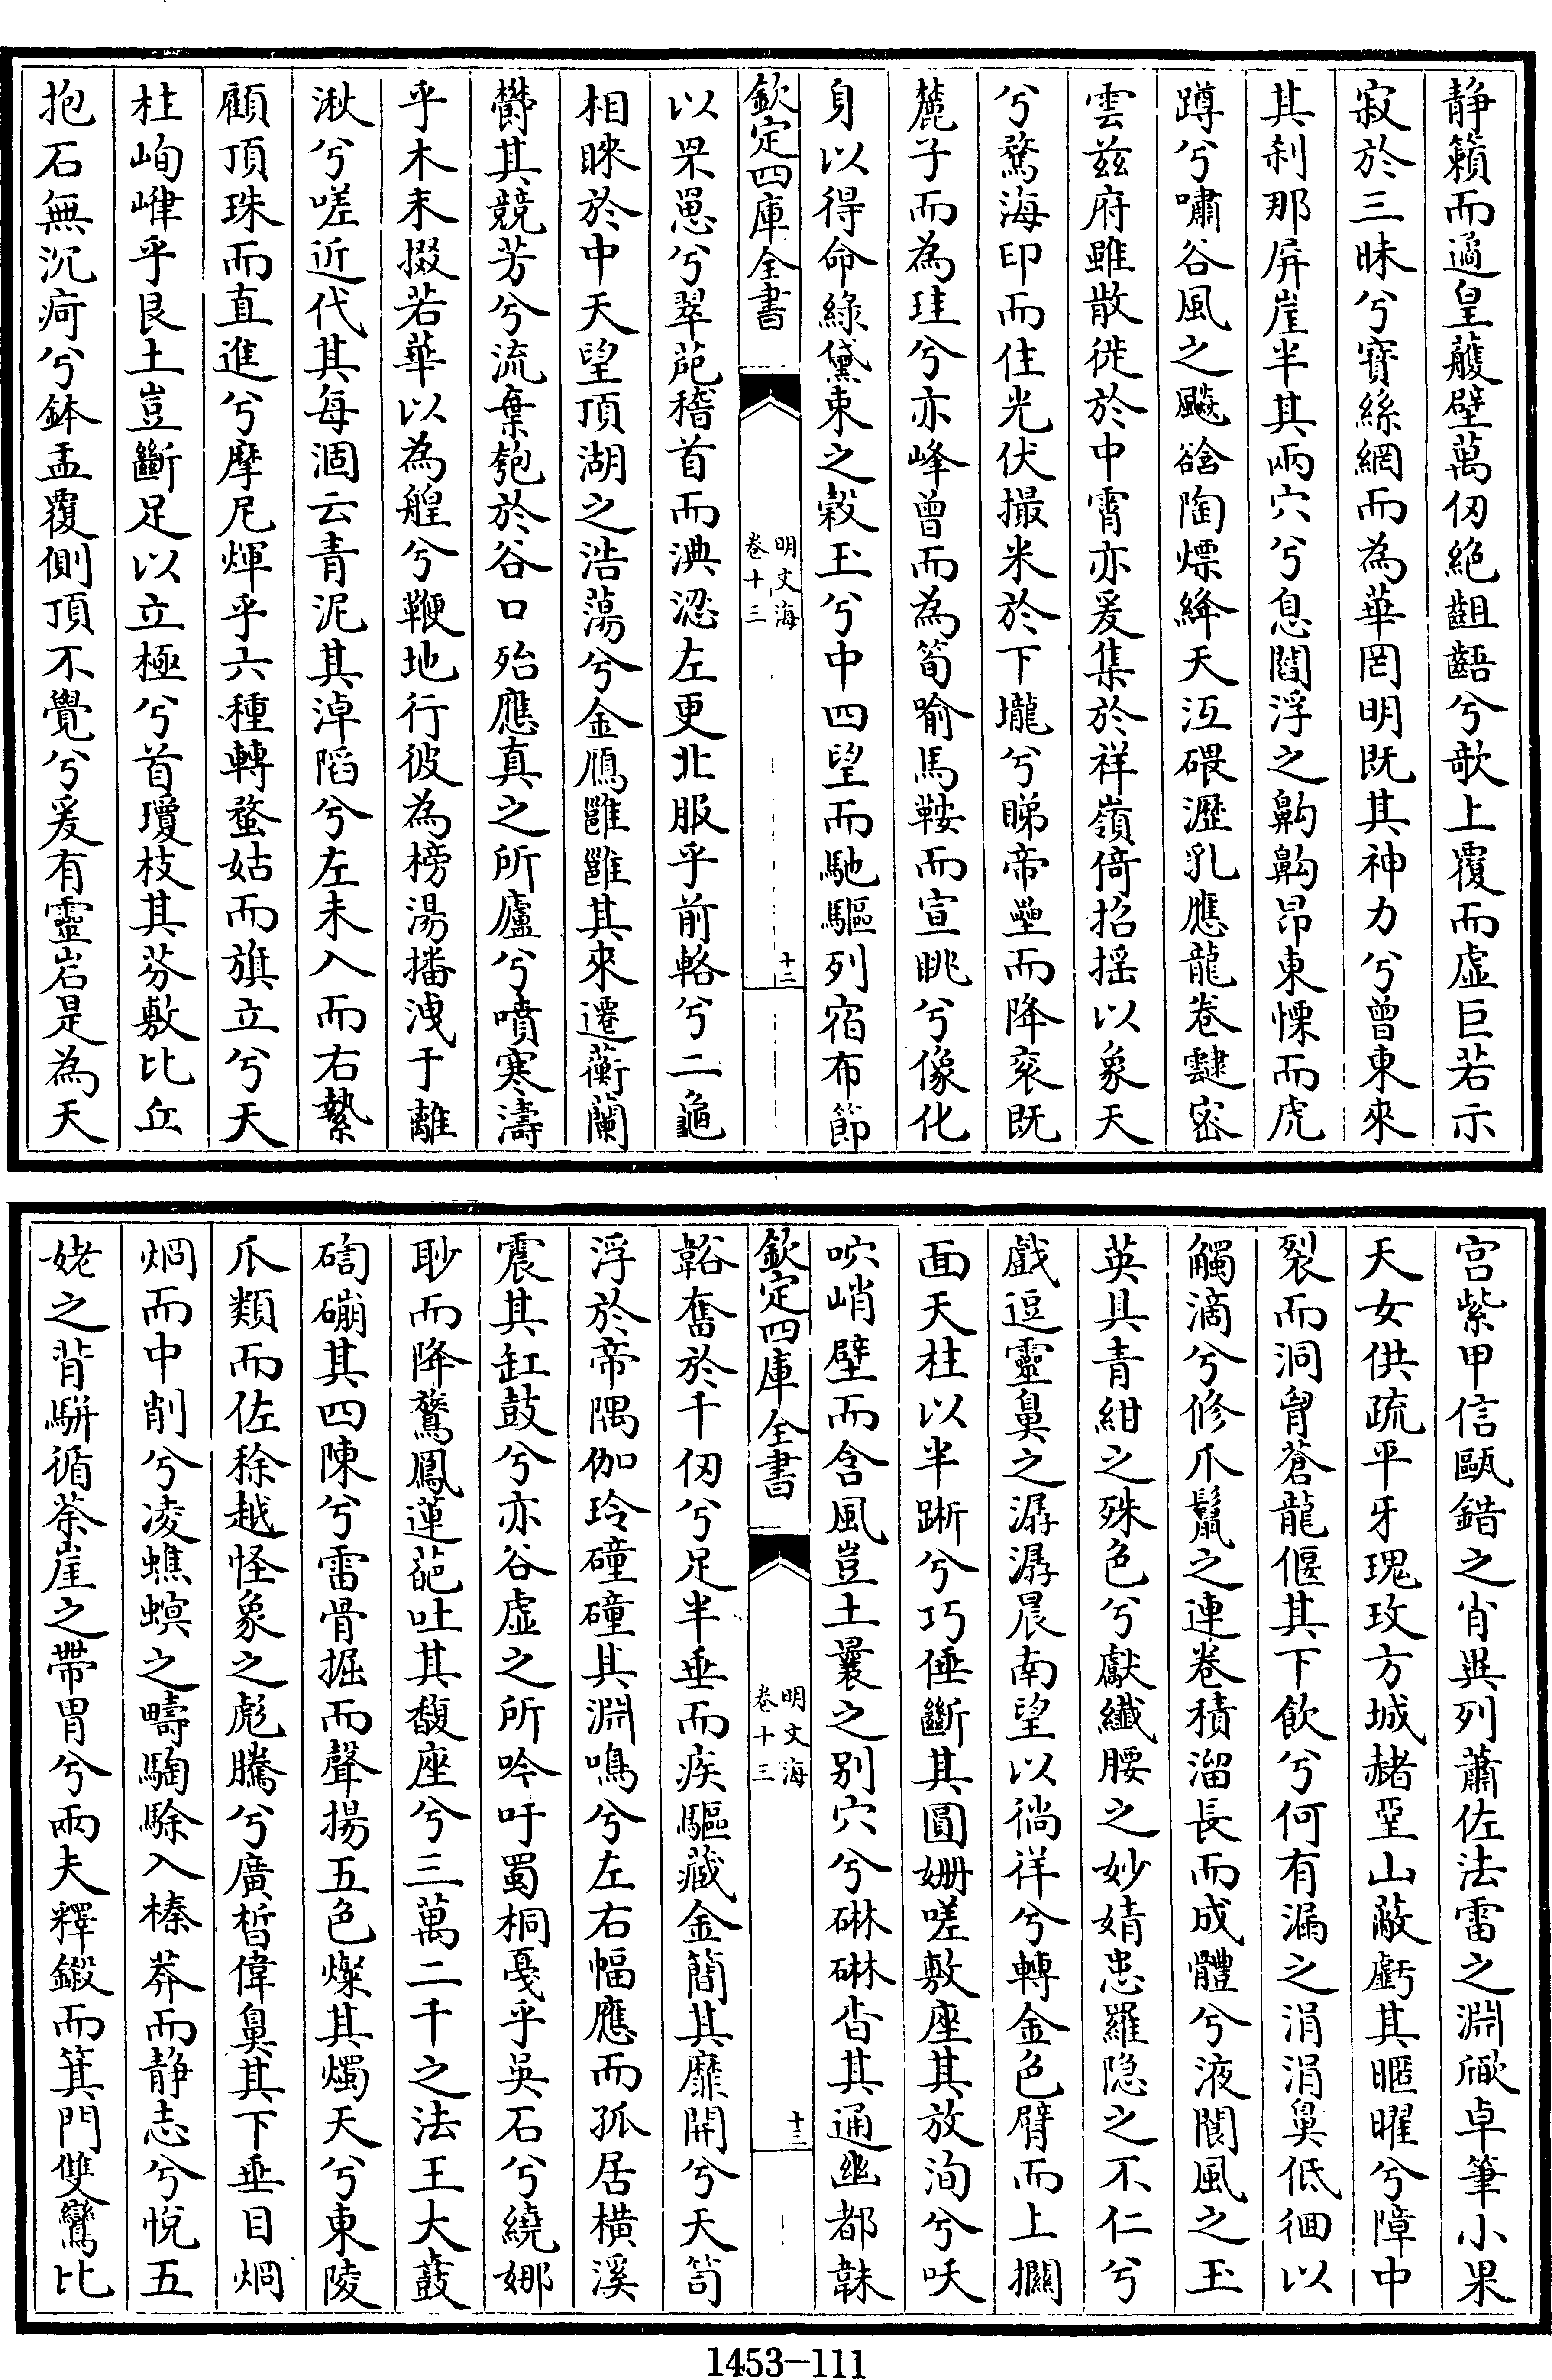 静籟而遹皇蘿壁萬仭絶齟齬兮欹上覆而虛巨若示
寂於三昧兮寶絲網而為華罔明既其神力兮曾東來
其刹那屏崖半其兩穴兮息閻浮之齁齁昂東慄而虎
蹲兮嘯谷風之颷谽陶熛絳天沍碨瀝乳應龍卷靆宻
雲兹府雖散徙於中霄亦爰集於祥嶺倚招揺以象天
兮騖海印而住光伏撮米於下壠兮睇帝壘而降衮既
麓子而為珪兮亦峰曾而為筍喻馬鞍而宣眺兮像化
身以得命綠黛東之穀玉兮中四望而馳驅列宿布節
欽定四庫全書
明文海
卷十三
十二
以罘罳兮翠葩稽首而淟涊左更北服乎前輅兮二龜
相睞於中天望頂湖之浩蕩兮金鴈雝雝其來遷蘅蘭
欎其競芳兮流葉匏於谷口殆應真之所廬兮噴寒濤
乎木末掇若華以為艎兮鞭地行彼為榜湯播洩于離
湫兮嗟近代其每涸云青泥其淖䧟兮左未入而右縶
顧頂珠而直進兮摩尼煇乎六種轉蝥姑而旗立兮天
柱峋嵂乎艮土豈斷足以立極兮首瓊枝其芬敷比丘
抱石無沉疴兮鉢盂覆側頂不覺兮爰有靈岩是為天
宫紫甲信甌錯之肖巽列蕭佐法雷之淵㵐卓筆小果
天女供疏平牙瑰玫方城赭堊山蔽虧其暱曜兮障中
裂而洞胷蒼龍偃其下飲兮何有漏之涓涓鼻低徊以
觸滴兮修爪鬣之連卷積溜長而成體兮液閬風之玉
英具青紺之殊色兮獻纖腰之妙婧恚羅隐之不仁兮
戲逗靈鼻之潺潺晨南望以徜祥兮轉金色臂而上攔
面天柱以半蹶兮巧倕斷其圓姍嗟敷座其放洵兮吷
吹峭壁而含風豈土囊之别穴兮碄碄杳其通幽都韎
欽定四庫全書
明文海
卷十三
十三
谽奮於千仭兮足半垂而疾驅藏金簡其靡開兮天笥
浮於帝隅伽玲礭礭其淵鳴兮左右幅應而孤居横溪
震其缸鼓兮亦谷虛之所吟吁蜀桐戞乎吳石兮繞娜
眇而降鶩鳳蓮葩吐其馥座兮三萬二千之法王大鼓
硇磞其四陳兮雷骨掘而聲揚五色燦其燭天兮東陵
爪類而佐稌越怪象之彪騰兮廣晳偉鼻其下垂目烱
烱而中削兮凌蟭螟之疇騊駼入榛莽而静志兮悅五
姥之背駢循荼崖之帶胃兮兩夫釋鍛而箕門雙鸞比
1453-111